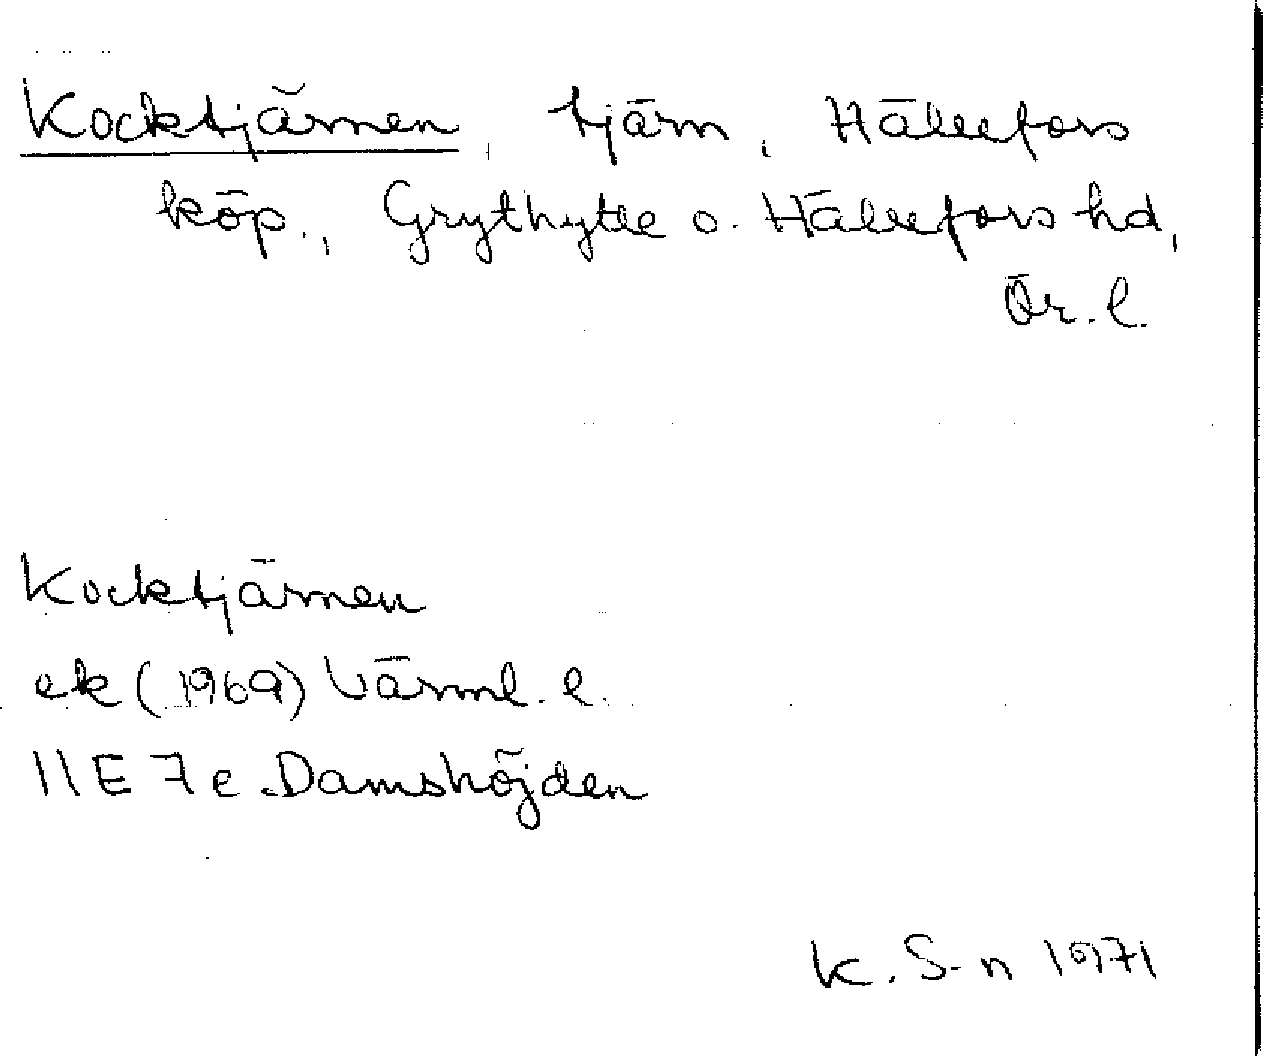 Kocktjärnen, tjärn, Hällefors
köp., Grythytte o. Hällefors hd,
Ör. l.
Kocktjärnen
ek (1969) Värml. l.
11E 7e Damshöjden
K. S-n 1971